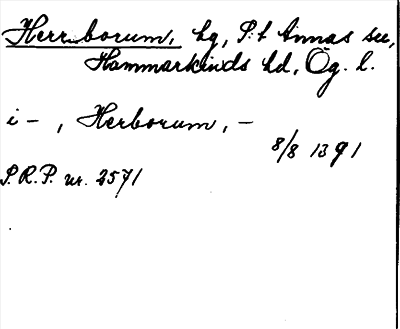 Herrborum, hg, S:t Annas sn,
Hammarkinds hd, Ög. l.
i - , Herborum, -
8/8 1391
S.R.P. nr. 2571